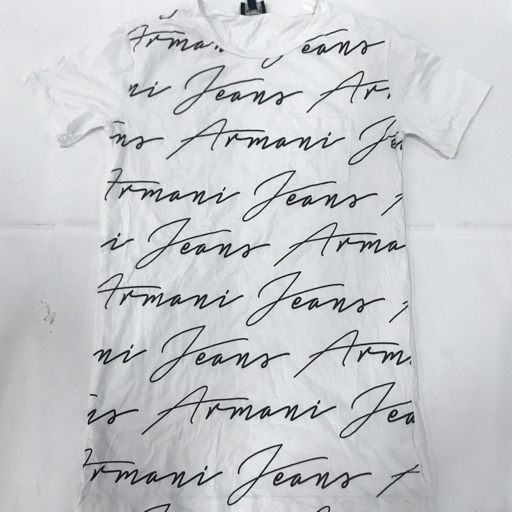 Arma. eans
ni Jeans Ar.
ns Armani Je
Armani Jeans
i Jeans Arma
Armani Jeans
ni Jeans Arm.
is Armani Jea
Armani Jeans